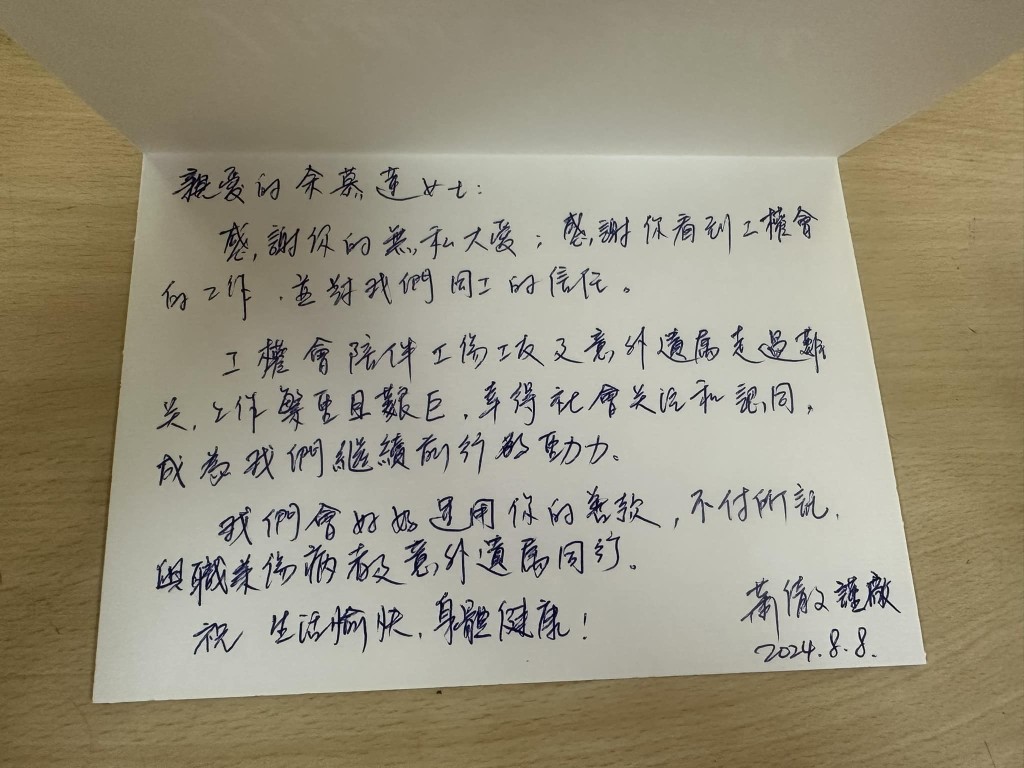 親愛的余慕蓮女士：
感謝你的無私大愛；感謝你看到工權會
的工作，並對我們同工的信任。
工權會陪伴工傷工友及意外遺属走過難
关，工作繁重且艱巨，幸得社會关注和認同，
成為我們繼續前行的動力。
我們會好好運用你的善款，不付所託，
與職業傷病者及意外遺属同行。
祝 生活愉快，身體健康！
蕭倩文 謹啟
2024.8.8.